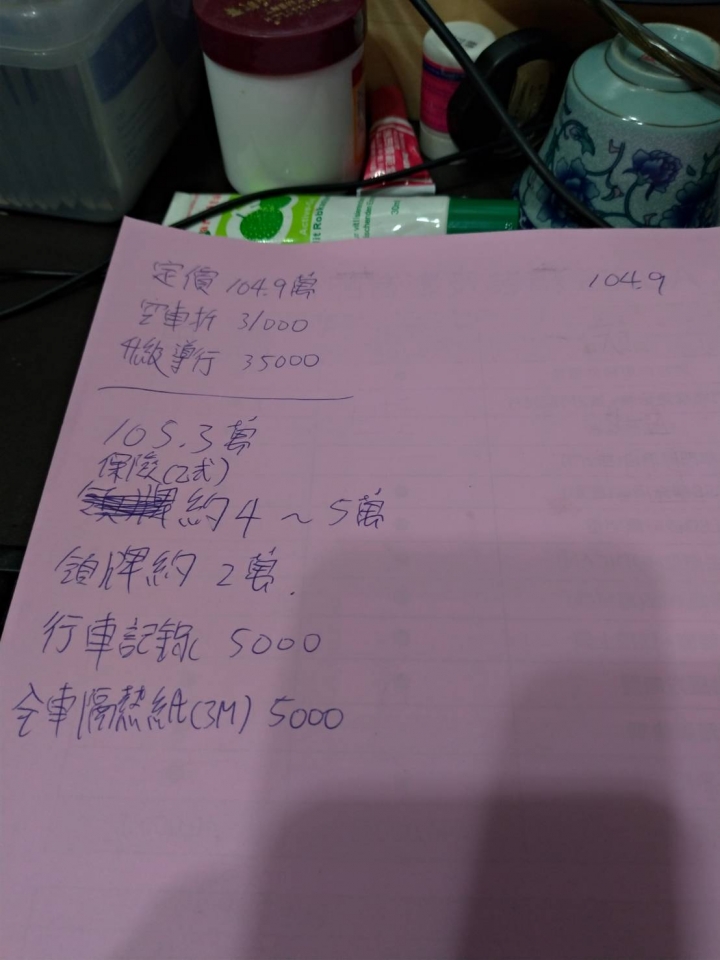 定價 104.9萬
104.9
空車折 31000
升級導行 35000
105.3萬
保險(乙式)
約4～5萬
領牌約 2萬.
行車記錄 5000
全車隔熱紙(3M) 5000
30ml